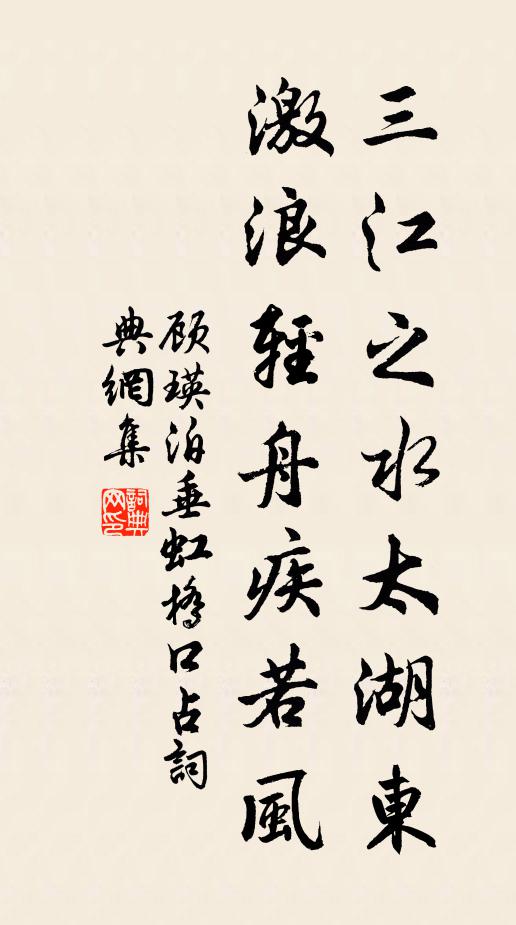 三江之水太湖東
激浪輕舟疾若風
顾瑛泊垂虹橋口占詞
典網集
詞典网印